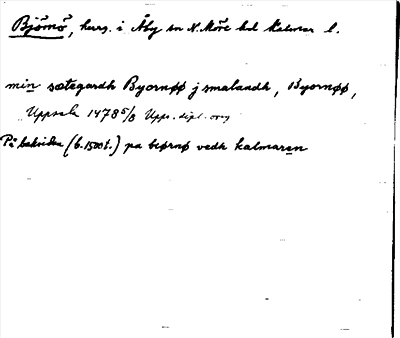 Björnö, herrg. i Åby sn N. Möre hd Kalmar l.
min sætegardh Byornøø j smalandh, Byornøø,
Uppsala 1478 5/8 Upps. dipl. orig
På baksidan (b. 1500 t.) pa biørnø vedh kalmaren